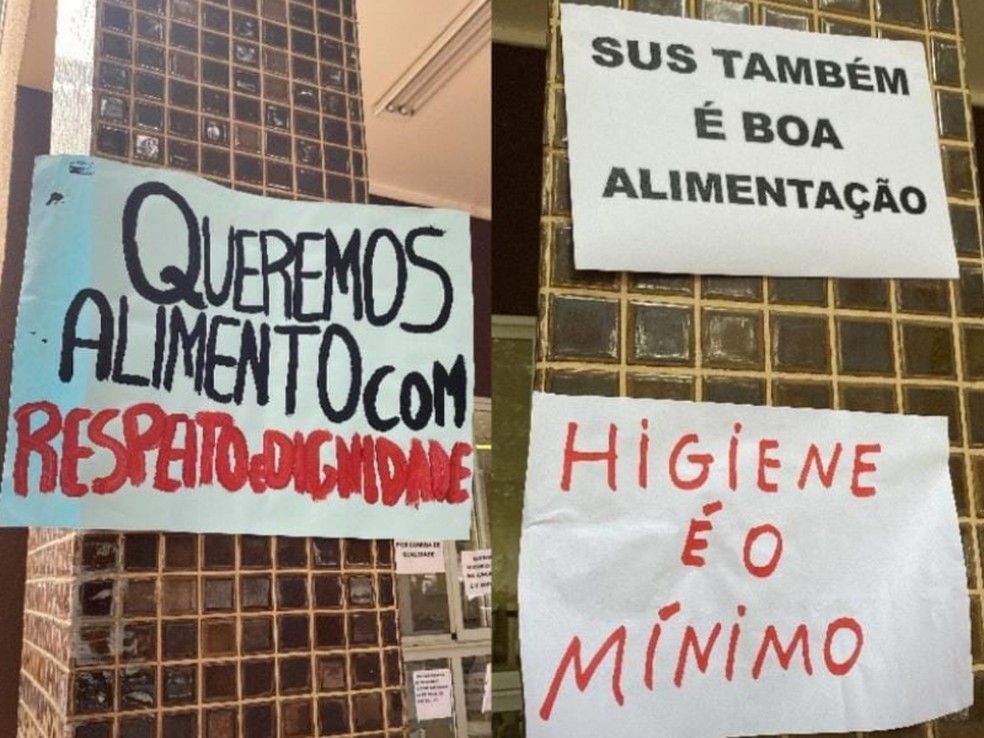 QUEREMOS
ALIMENTO COM
RESPEITO e DIGNIDADE
QUALIDADE
SUS TAMBÉM
É BOA
ALIMENTAÇÃO
HIGIENE
É O
MÍNIMO